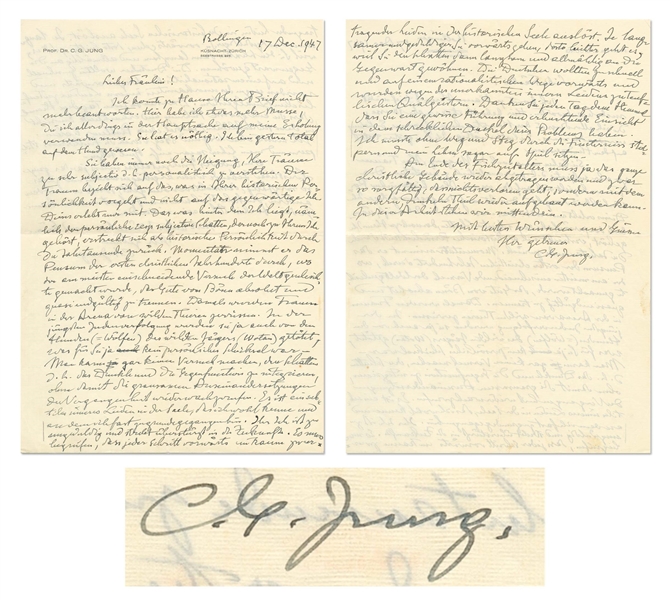 Bollingen
PROF. DR. C. G. JUNG
KÜSNACHT-ZÜRICH
SEESTRASSE 228
17 Dec. 1947
Liebes Fräulein!
Ich konnte zu Hause Ihren Brief nicht
mehr beantworten. Hier habe ich etwas mehr Musse,
die ich allerdings in der Hauptsache auf meine Erholung
verwenden muss. So hat es nötig. Ich bin gestern total
auf den Hund gekommen.
Sie haben immer noch die Neigung, Ihre Träume
zu sehr subjectiv d.h. personalistisch zu verstehen. Der
Traum bezieht sich auf das was in Ihrer historischen Per-
sönlichkeit vorgeht und nicht auf das gegenwärtige Ich.
Das was hinter dem Ich liegt, näm-
lich der persönliche resp. subjective Schatten, der noch zu Ihrem Ich
gehört, erstreckt sich als historische Persönlichkeit durch
die Jahrtausende zurück. Momentan nimmt er das
Pensum der ersten christlichen Jahrhunderte durch, wo
der am meisten einschneidende Versuch der Weltgeschich-
te gemacht wurde, das Gute vom Bösen absolut und
quasi endgültig zu trennen. Damals wurden Frauen
in der Arena von wilden Thieren zerrissen. In der
jüngsten Judenverfolgung wurden sie ja auch von den
Hunden (= Wölfen) des wilden Jägers (Wotan) getötet,
was für Sie ja kein persönliches Schicksal war.
Man kann ja gar keinen Versuch machen, den Schatten
d.h. das Dunkle und die Gegenfunction zu integrieren,
ohne damit die grausamen Auseinandersetzungen
der Vergangenheit wieder wachzurufen. Es ist ein sch-
limmes Leiden in der Seele, das ich wohl kenne und
an dem ich fast zugrunde gegangen bin. Ihr Ich ist zu
ungeduldig und strebt in die Zukunft. Es muss
begreifen, dass jeder Schritt vorwärts ein kaum zu er-
tragendes Leiden in der historischen Seele auslöst. Je lang-
samer und geduldiger Sie vorwärts gehen, desto leichter geht es,
weil Sie den Schatten dann langsam und allmählig an die
Gegenwart gewöhnen. Die Deutschen wollten zu schnell
und auf einem nationalistischen Wege vorwärts und
wurden wegen des unerkannten inneren Leidens zu teuf-
lischen Quälgeistern. Danken Sie jeden Tag dem Himmel,
dass Sie eine gewisse Führung und erleuchtende Einsicht
in dem schrecklichen Dunkel Ihres Problems haben.
Ich musste ohne Weg und Steg durch die Finsterniss stol-
pern und man sah sogar
Am Ende des Fischzeitalters muss ja das ganze
christliche Gebäude wieder abgetragen werden und zwar
so sorgfältig, dass nichts verloren geht, sondern mit dem
anderen dunkeln Theil wieder aufgebaut werden kann.
In dieser Arbeit stehen wir mitten drin.
Mit besten Wünschen und Grüssen
Ihr getreuer
C.G. Jung.
C. G. Jung.